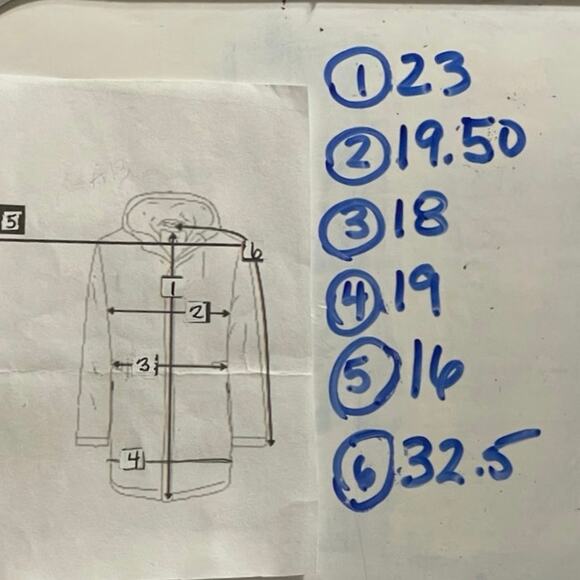 ① 23
② 19.50
③ 18
④ 19
⑤ 16
⑥ 32.5
5
6
1
2
3
4